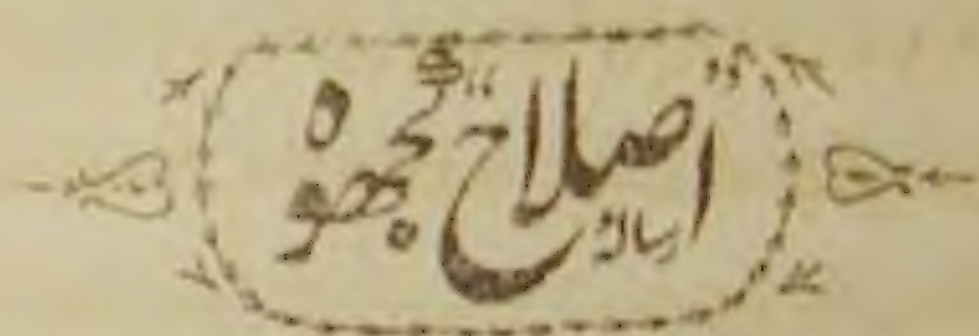 رسالہ اصلاح کھجوہ